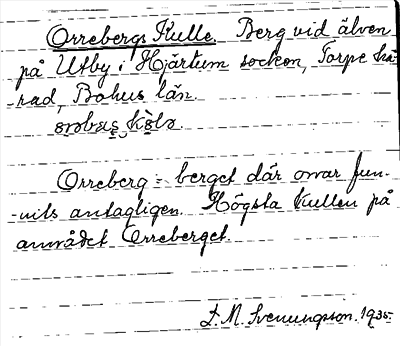 Orrebergs Kulle. Berg vid älven
på Utby i Hjärtum socken, Torpe hä-
-rad, Bohus län.

Orreberg = berget där orrar fun-
-nits antagligen. Högsta kullen på
området Orreberget.
J. M. Svenungsson. 1935